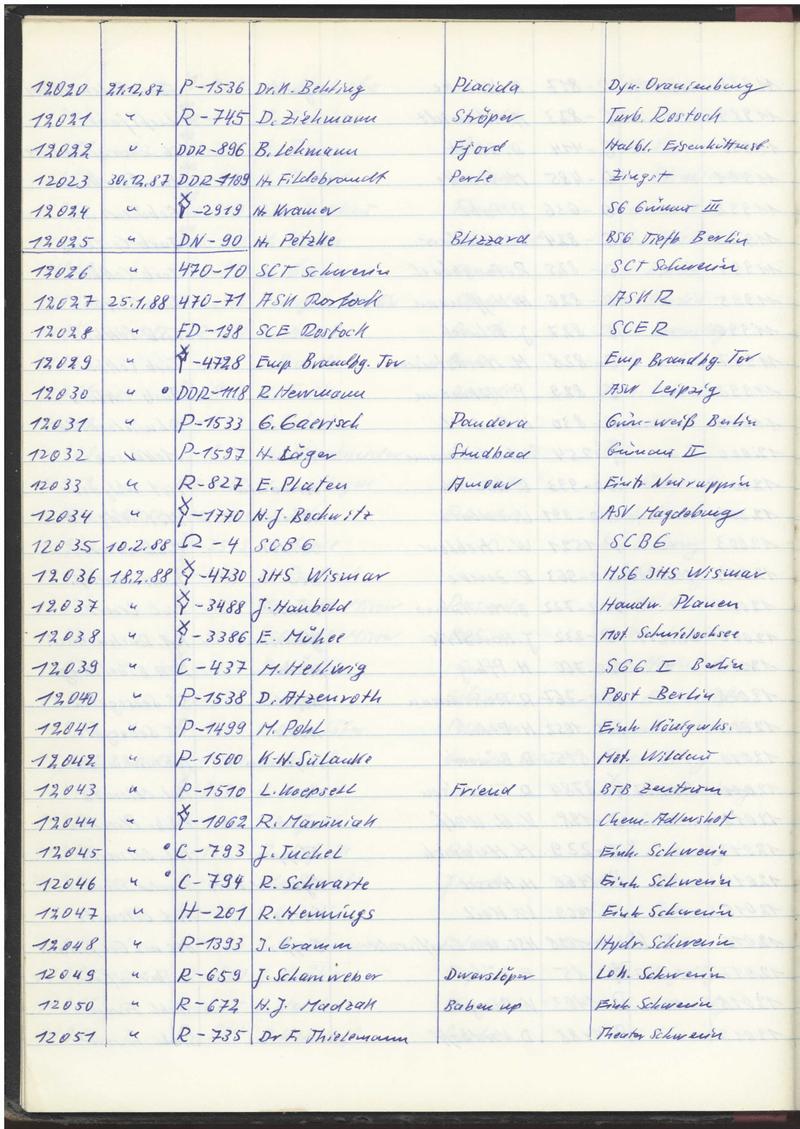 12020 21.12.87 P-1536 Dr. H. Behling Placida Dyn. Oranienburg
12021 " R-745 D. Ziehmann Ströper Turb. Rostock
12022 " DDR-896 B. Lehmann Fjord Halbl. Eisenhüttenst
12023 30.12.87 DDR-1109 H. Fildebrandt Perle Zingst
12024 " -2919 H. Kramer SG Grünau III
12025 " DN-90 H. Petzke Blizzard BSG Tiefb Berlin
12026 " 470-10 SCT Schwerin SCT Schwerin
12027 25.1.88 470-71 ASK Rostock ASKR
12028 " FD-198 SCE Rostock SCER
12029 " -4728 Emp. Brandbg. Tor Emp. Brandbg. Tor
12030 " DDR-1118 R. Herrmann ASK Leipzig
12031 " P-1533 G. Gaerisch Pandora Grün-weiß Berlin
12032 " P-1597 H. Jäger Sindbad Grünau II
12033 " R-827 E. Platen Amour Einh. Neuruppin
12034 " -1770 H.J. Bockwitz ASV Magdeburg
12035 10.2.88 Ω-4 SCBG SCBG
12036 18.2.88 -4730 JHS Wismar HSG JHS Wismar
12037 " -3488 J. Haubold Handw. Plauen
12038 " -3386 E. Mühle Mot. Schwielochsee
12039 " C-437 M. Hellwig SGG I Berlin
12040 " P-1538 D. Atzenroth Post Berlin
12041 " P-1499 M. Pohl Einh. Königwhs.
12042 " P-1500 K-H. Sulanke Mot. Wildau
12043 " P-1510 L. Koepsell Friend BTB Zentrum
12044 " -1062 R. Maruniak Chem. Adlershof
12045 " C-793 J. Tuchel Einh. Schwerin
12046 " C-794 R. Schwarte Einh. Schwerin
12047 " H-201 R. Hennings Einh Schwerin
12048 " P-1393 J. Gramm Hydr. Schwerin
12049 " R-659 J. Schamweber Dwarslöper Lok. Schwerin
12050 " R-672 H.J. Madzak Baben up Einh Schwerin
12051 " R-735 Dr F. Thielemann Theater Schwerin